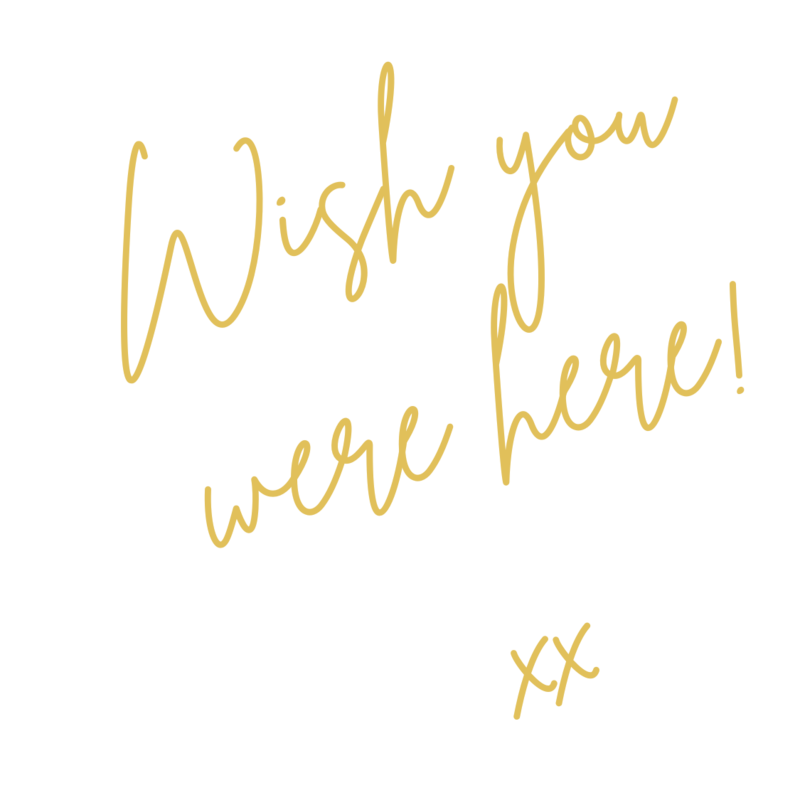 Wish you
were here!
xx